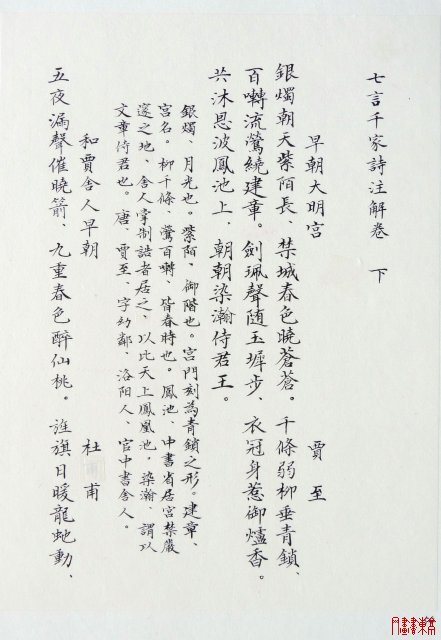 七言千家詩注解卷 下
早朝大明宮 賈 至
銀燭朝天紫陌長、禁城春色曉蒼蒼。千條弱柳垂青鎖、
百囀流鶯繞建章。劍珮聲随玉墀步、衣冠身惹御爐香。
共沐恩波鳳池上、朝朝染瀚侍君王。
銀燭、月光也。紫陌、御階也。宮門刻為青鎖之形。建章、
宮名。柳千條、鶯百囀、皆春時也。鳳池、中書省居宮禁嚴
邃之地、舍人掌制誥者居之、以比天上鳳凰池。染瀚、謂以
文章侍君也。唐、賈至、字幼鄰、洛陽人、官中書舍人。
和賈舍人早朝 杜 甫
五夜漏聲催曉箭、九重春色醉仙桃。旌旗日暖龍虵動、